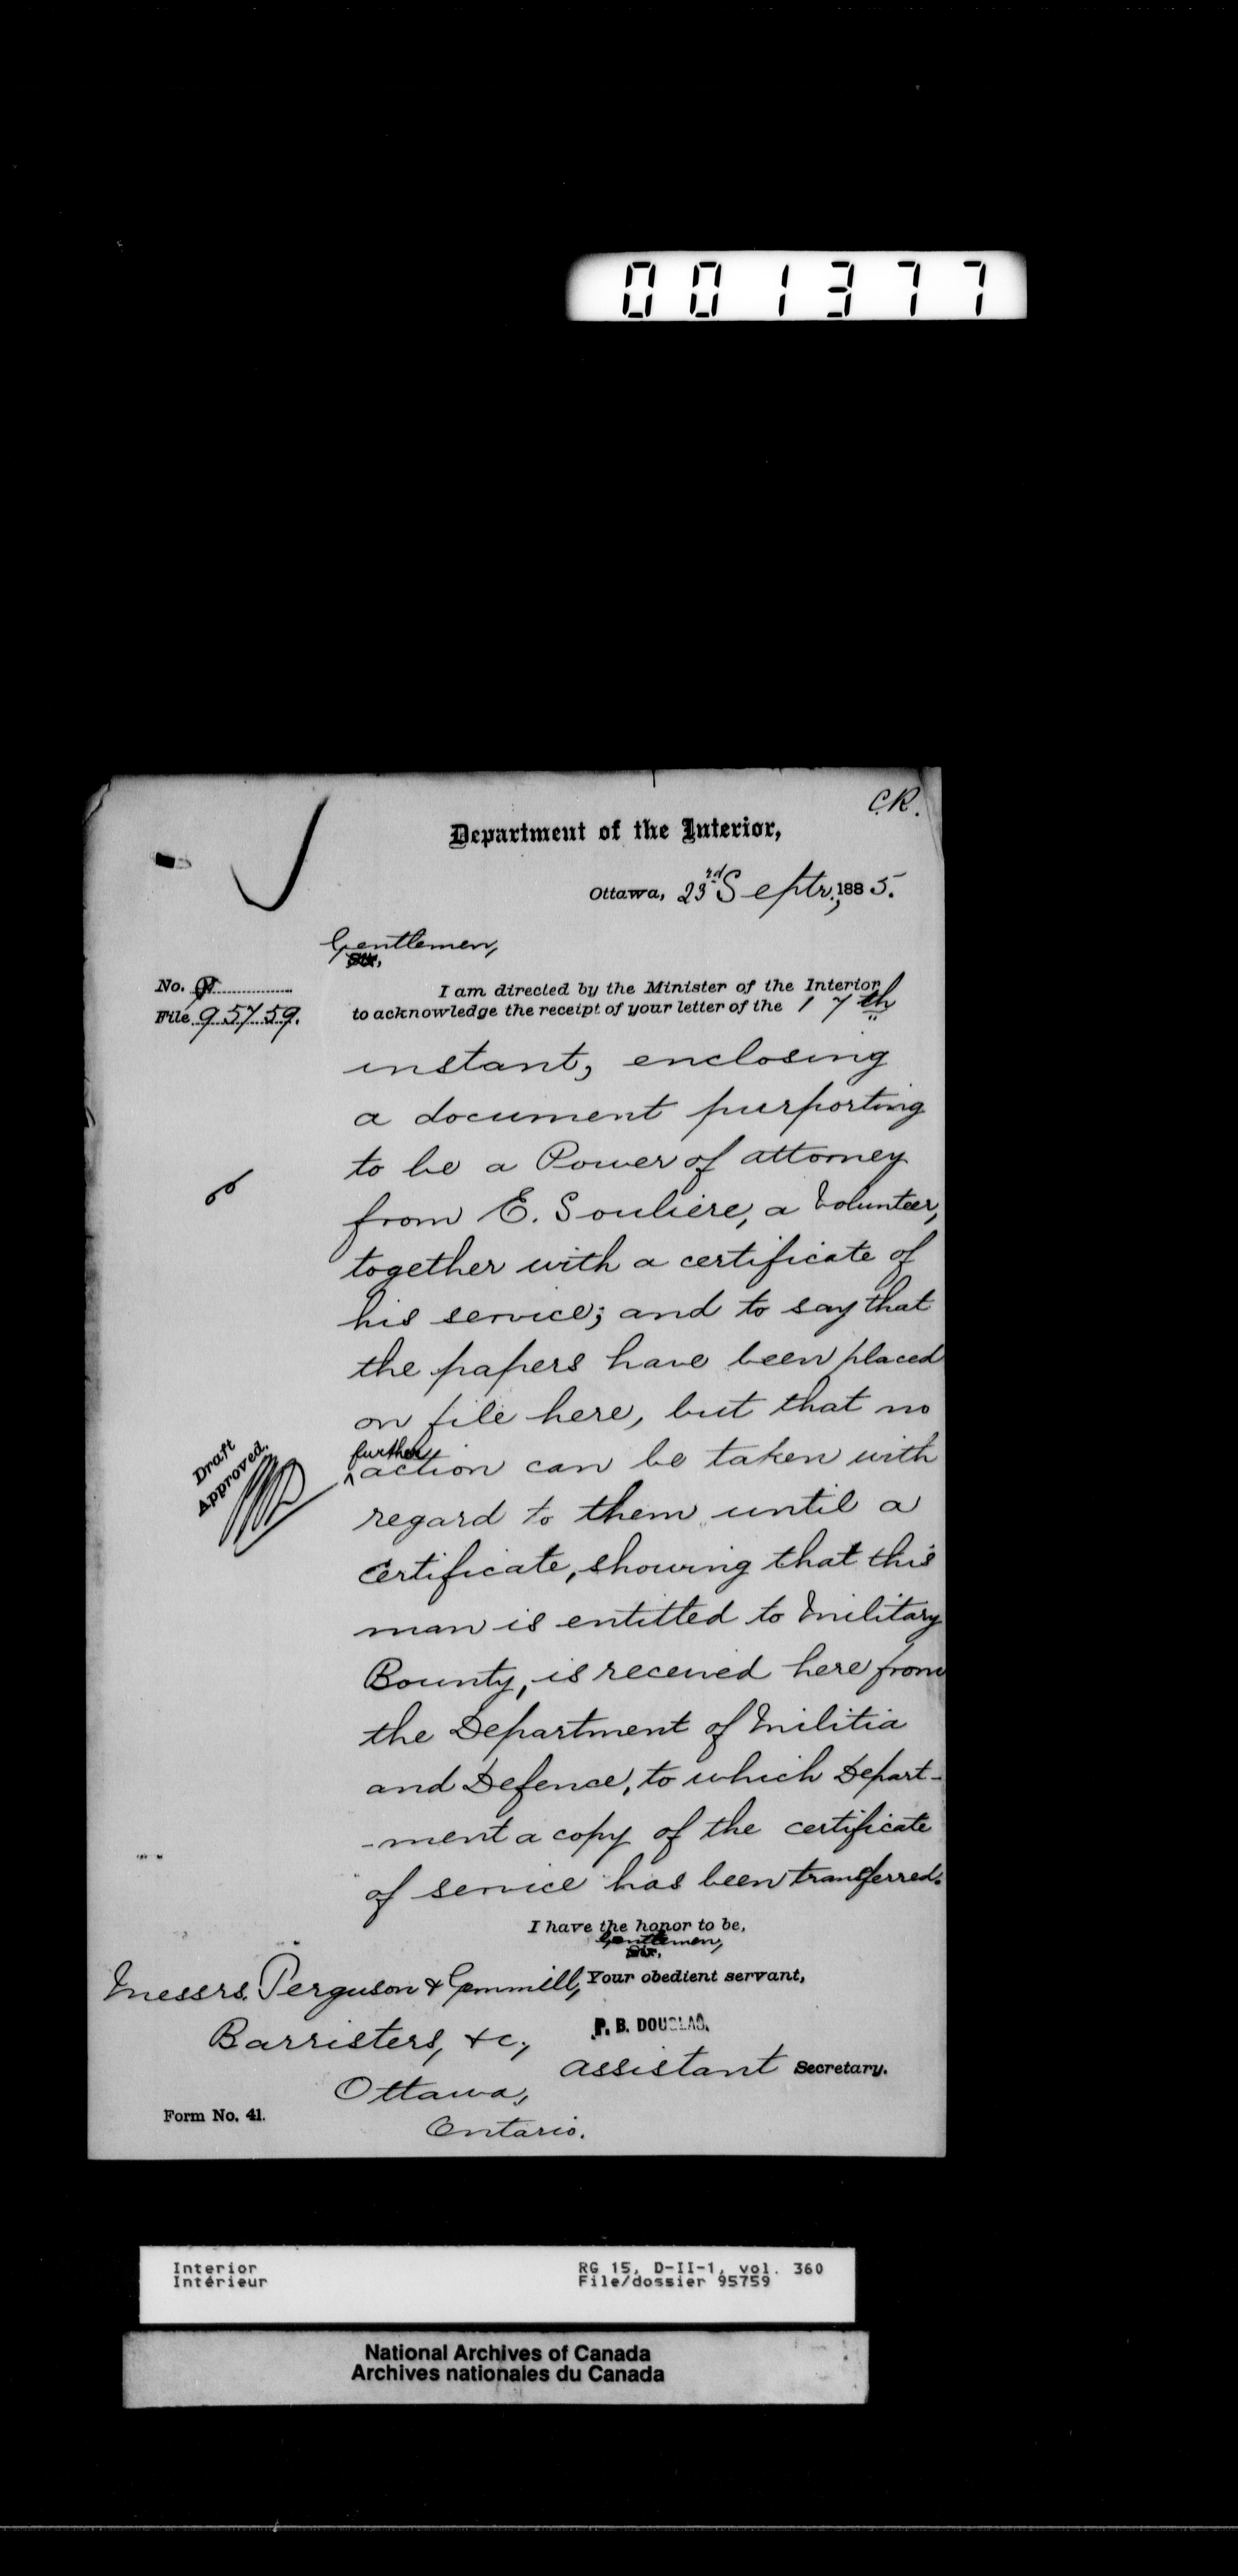 001377
C.R.
Department of the Interior,
Ottawa, 23rd Septr., 1885.
Gentlemen,
Sir,
No.
File 95759.
I am directed by the Minister of the Interior
to acknowledge the receipt of your letter of the 17th
instant, enclosing
a document purporting
to be a Power of attorney
from E. Souliere, a Volunteer,
together with a certificate of
his service; and to say that
the papers have been placed
on file here, but that no
further
action can be taken with
Draft
Approved.
regard to them until a
Certificate, showing that this
man is entitled to Military
Bounty, is received here from
the Department of Militia
and Defence, to which Depart-
-ment a copy of the certificate
of service has been transferred.
I have the honor to be,
Gentlemen,
Sir,
Your obedient servant,
Messrs. Perguson & Gemmill,
P. B. DOUGLAS.
Barristers, &c.,
assistant Secretary.
Ottawa,
Form No. 41.
Ontario.
Interior
Intérieur
RG 15, D-II-1, vol. 360
File/dossier 95759
National Archives of Canada
Archives nationales du Canada